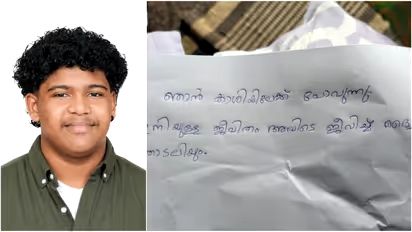 ഞാൻ കാശിയിലേക്ക് പോവുന്നു
ഇനിയുള്ള ജീവിതം അവിടെ ജീവിച്ച്